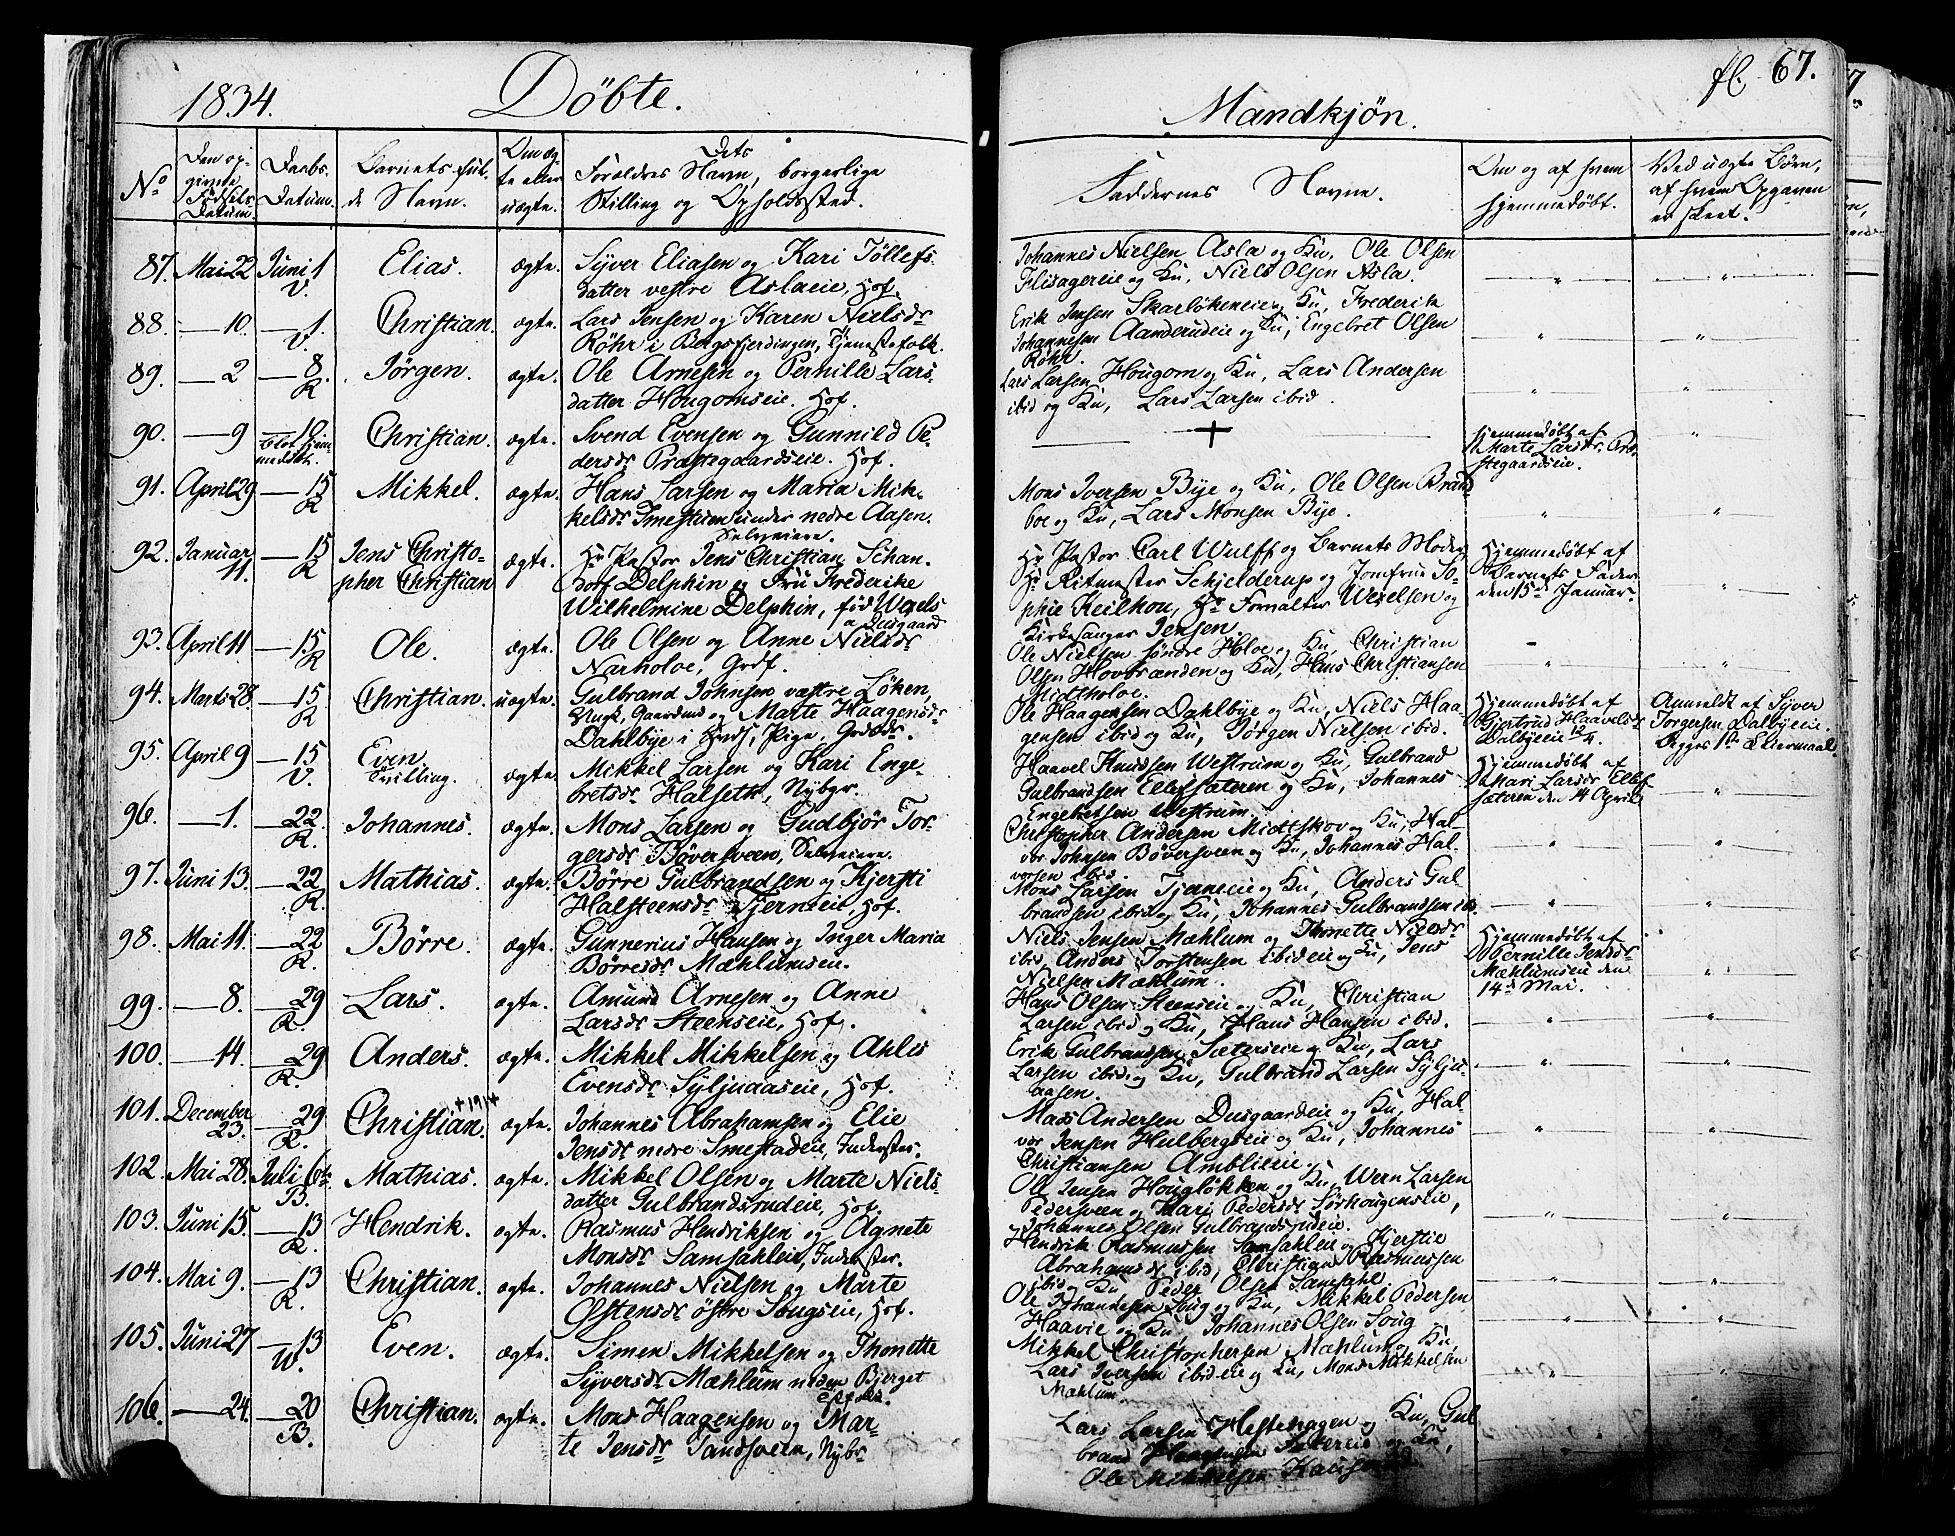 1834.
Döbte.
Mandkjøn.
fl. 67.
No
Den opgivne Fødsels Datum.
Daabs Datum.
Barnets fulde Navn.
Om ægte eller uægte.
Dets Forældres Navn, borgerlige Stilling og Opholdssted.
Faddernes Navne.
Om og af hvem hjemmedøbt.
Ved uægte Børn, af hvem Opgaven er skeet.
87. Mai 22 Juni 1 V. Elias. ægte. Syver Eliasen og Kari Tøllefs-
datter vestre Aslaeie, Hof.
Johannes Nielsen Asla og Ku, Ole Olsen
Flisagereie og Ku, Niels Olsen Asla.
88. — 10. — 1. V. Christian. ægte. Lars Jensen og Karen Nielsdr
Röhr i Bergsfjerdingen, Tjenestefolk.
Erik Jensen Skarløkeneie og Ku, Frederik
Johannesen Aanderudeie og Ku, Engebret Olsen
Röhr.
89. — 2 — 8. R Jörgen. ægte. Ole Arnesen og Pernille Lars-
datter Hougomseie. Hof.
Lars Larsen Hougom og Ku, Lars Andersen
ibid og Ku, Lars Larsen ibid.
90. — 9 — 10 blot hjemmedøbt. Christian. ægte. Svend Evensen og Gunnild Pe-
dersdr Præstegaardseie. Hof.
+
Hjemmedøbt af
Marte Larsdr. Præ-
stegaardseie.
91. April 29 — 15 R Mikkel. ægte. Hans Larsen og Maria Mik-
kelsdr Smestuen under nedre Aasen.
Selveiere.
Mons Iversen Bye og Ku, Ole Olsen Brand
boe og Ku, Lars Monsen Bye.
92. Januar 11. — 15 R Jens Christo-
pher Christian ægte. Hr Pastor Jens Christian Schan-
dorf Delphin og Fru Frederike
Wilhelmine Delphin, fød Wexels
a Dusgaard
Hr Pastor Carl Wulff og Barnets Moder
Hr Ritmester Schjelderup og Jomfrue So-
phie Keilhou, Hr Forvalter Wexelsen og
Kirkesanger Jensen.
Hjemmedøbt af
Barnets Fader
den 15de Januar.
93. April 11. — 15 R Ole. ægte. Ole Olsen og Anne Nielsdr
Narholoe, Grdf.
Ole Nielsen søndre Holoe og Ku, Christian
Olsen Hovbrænden og Ku, Hans Christiansen
Midtholoe.
94. Marts 28. — 15. R Christian. uægte. Gulbrand Johnsen vestre Löken,
Ungk, Gaardmd og Marte Haagensdr
Dahlbye i Pige, Grdedr.
Ole Haagensen Dahlbye og Ku, Niels Haa-
gensen ibid og Ku, Jörgen Nielsen ibid.
Hjemmedøbt af
Gjertrud Haavelsdr
Dalbyeeie 13/4.
Anmeldt af Syver
Torgersen Dalbyeeie.
Begges 1ste Leiermaal
95. April 9 — 15 V. Even
Tvilling. ægte. Mikkel Larsen og Kari Enge-
bretsdr Halseth, Nybgr.
Haavel Knudsen Westrum og Ku, Gulbrand
Gulbrandsen Ellefsæteren og Ku, Johannes
Engebretsen Westrum.
Hjemmedøbt af
Mari Larsdr Ellef-
sæteren den 14 April
96. — 1. — 22. R. Johannes. ægte. Mons Larsen og Gudbjör Tor-
gersdr Böversveen, Selveiere.
Christopher Andersen Midtskov og Ku, Hal-
vor Johnsen Böversveen og Ku, Johannes Hal-
vorsen ibid.
97. Juni 13. — 22 R. Mathias. ægte. Börre Gulbrandsen og Kjersti
Halsteensdr Tjerneie, Hof.
Mons Larsen Tjerneie og Ku, Anders Gul-
brandsen ibid og Ku, Johannes Gulbrandsen ibid.
98. Mai 11. — 22 R. Börre ægte. Gunnerius Hansen og Inger Maria
Börresdr Mæhlumseie.
Niels Jensen Mæhlum og Thonette Nielsdr
ibid, Anders Torstensen ibideie og Ku, Jens
Nielsen Mæhlum.
Hjemmedøbt af
Pernille Jensdr
Mæhlumseie den
14de Mai.
99. — 8. — 29 R. Lars. ægte. Amund Arnesen og Anne
Larsdr Steenseie, Hof.
Hans Olsen Steenseie og Ku, Christian
Larsen ibid og Ku, Hans Hansen ibid.
100. — 14. — 29 R. Anders. ægte. Mikkel Mikkelsen og Ahlis
Evensdr Syljuaaseie, Hof.
Erik Gulbrandsen Sæterseie og Ku, Lars
Larsen ibid og Ku, Gulbrand Larsen Sylju-
aasen.
101. December 23. — 29 R. Christian. +1914 ægte. Johannes Abrahamsen og Elie
Jensdr nedre Smestadeie, Inderster.
Mads Andersen Dusgaardeie og Ku, Hal-
vor Jensen Hulbergseie og Ku, Johannes
Christiansen Amblieeie.
102. Mai 28. Juli 6te B. Mathias. ægte. Mikkel Olsen og Marte Niels-
datter Gulbrandsrudeie, Hof.
Ole Jensen Houglökken og Ku, Wern Larsen
Pedersveen og Mari Pedersdr Sørhougenseie,
Johannes Olsen Gulbrandsrudeie.
103. Juni 15. — 13 R. Hendrik. ægte. Rasmus Hendriksen og Agnete
Monsdr Samsahleie, Inderster.
Hendrik Rasmussen Samsahleie og Kjerstie
Abrahamsdr ibid, Christian Rasmussen
ibid og Ku Peder Olsen Samsahl
104. Mai 9. — 13 R. Christian. ægte. Johannes Nielsen og Marte
Østensdr østre Sougseie, Hof.
Ole Johannesen Soug og Ku, Mikkel Pedersen
Haavie og Ku, Johannes Olsen Soug
105. Juni 27 — 13 V. Even. ægte. Simen Mikkelsen og Thonette
Syversdr Mæhlum neden Bjerget
Mikkel Christophersen Mæhlum og Ku,
Lars Iversen ibideie og Ku, Mons Mikkelsen
Mæhlum.
106. — 24. — 20 B. Christian. ægte. Mons Haagensen og Mar-
te Jensdr Sandsveen, Nybr
Lars Larsen Hestehagen og Ku, Gul
brand Sætereie og Ku,
Ole Mikkelsen